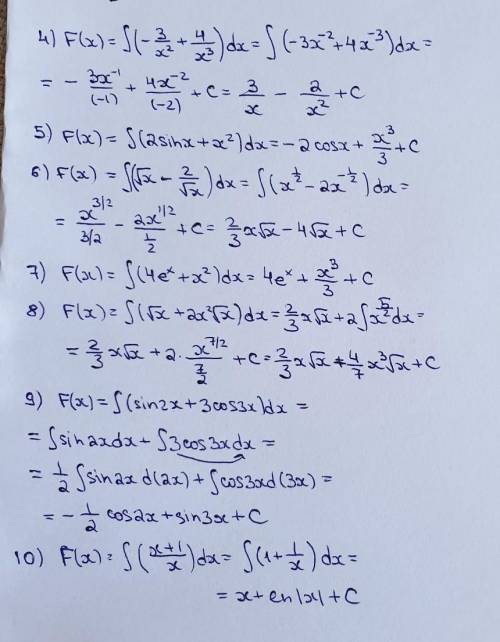 4) F(x) = ∫(-3/x² + 4/x³)dx = ∫(-3x⁻² + 4x⁻³)dx =
= - 3x⁻¹/(-1) + 4x⁻²/(-2) + C = 3/x - 2/x² + C
5) F(x) = ∫(2sinx + x²)dx = -2cosx + x³/3 + C
6) F(x) = ∫(√x - 2/√x)dx = ∫(x^(1/2) - 2x^(-1/2))dx =
= x^(3/2)/(3/2) - 2x^(1/2)/(1/2) + C = 2/3 x√x - 4√x + C
7) F(x) = ∫(4eˣ + x²)dx = 4eˣ + x³/3 + C
8) F(x) = ∫(√x + 2x²√x)dx = 2/3 x√x + 2∫x^(5/2)dx =
= 2/3 x√x + 2 · x^(7/2)/(7/2) + C = 2/3 x√x + 4/7 x³√x + C
9) F(x) = ∫(sin2x + 3cos3x)dx =
= ∫sin2xdx + ∫3cos3xdx =
= 1/2 ∫sin2x d(2x) + ∫cos3xd(3x) =
= - 1/2 cos2x + sin3x + C
10) F(x) = ∫(x+1/x)dx = ∫(1 + 1/x)dx =
= x + ln|x| + C